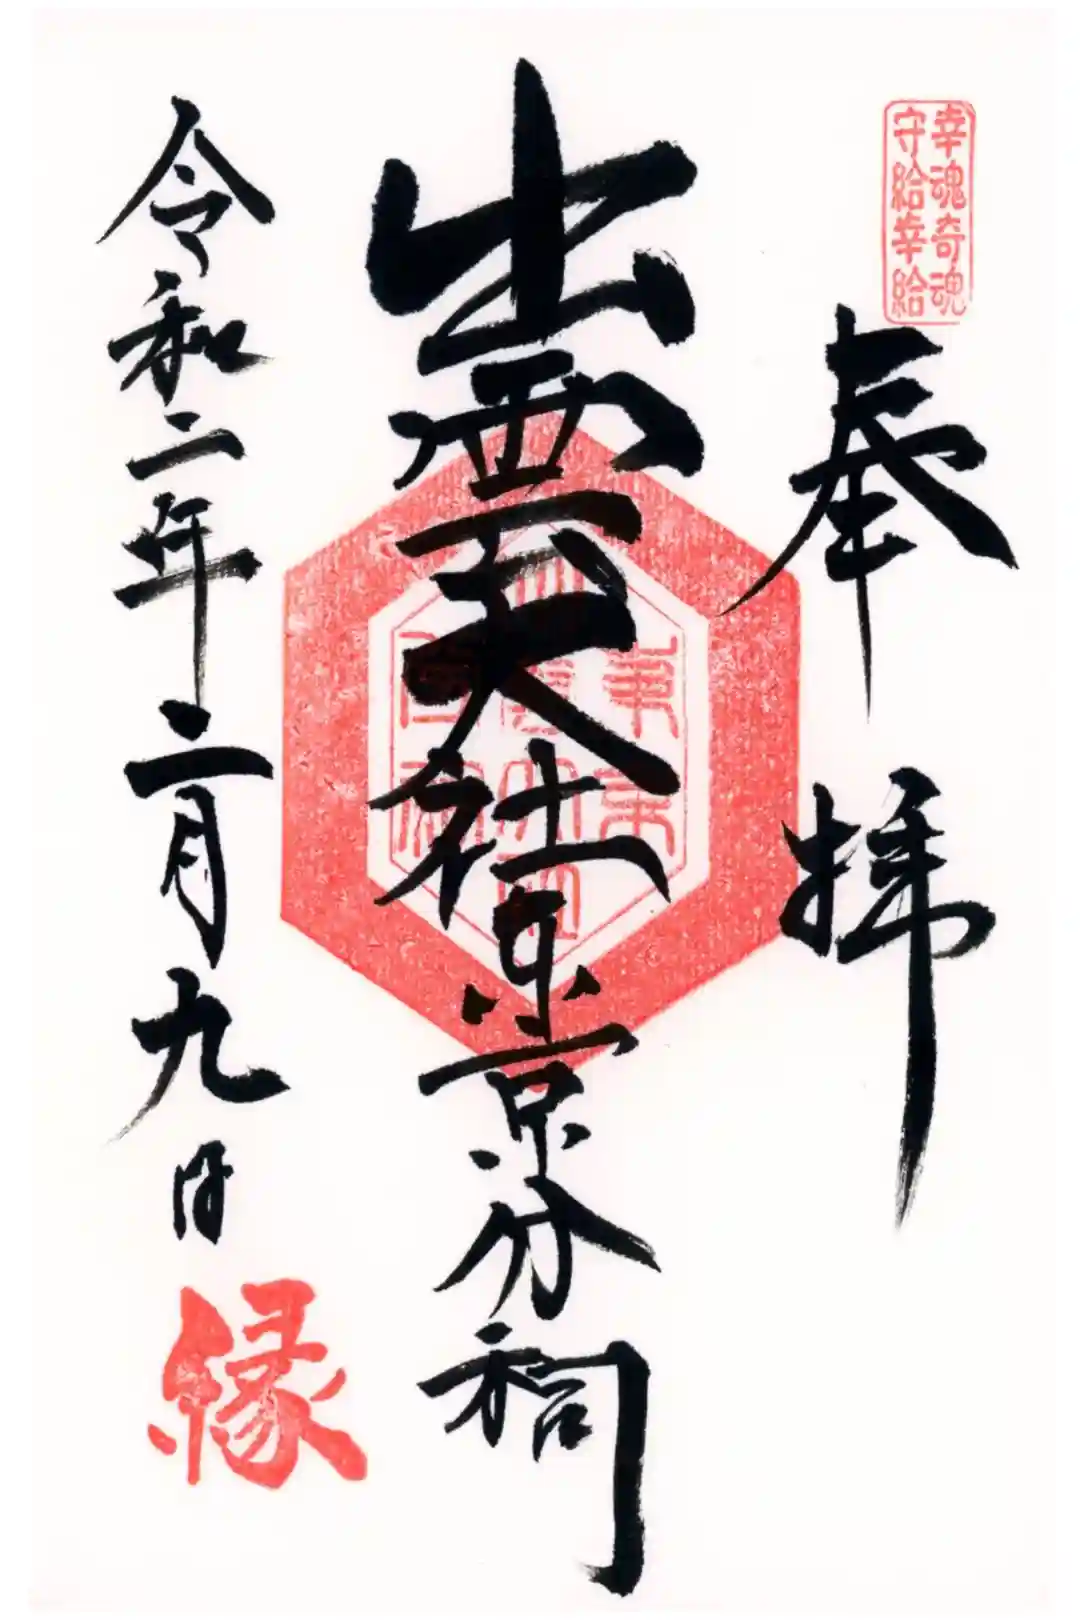 幸魂奇魂
守給幸給
奉拝
出雲大社東京分祠
令和二年二月九日
縁